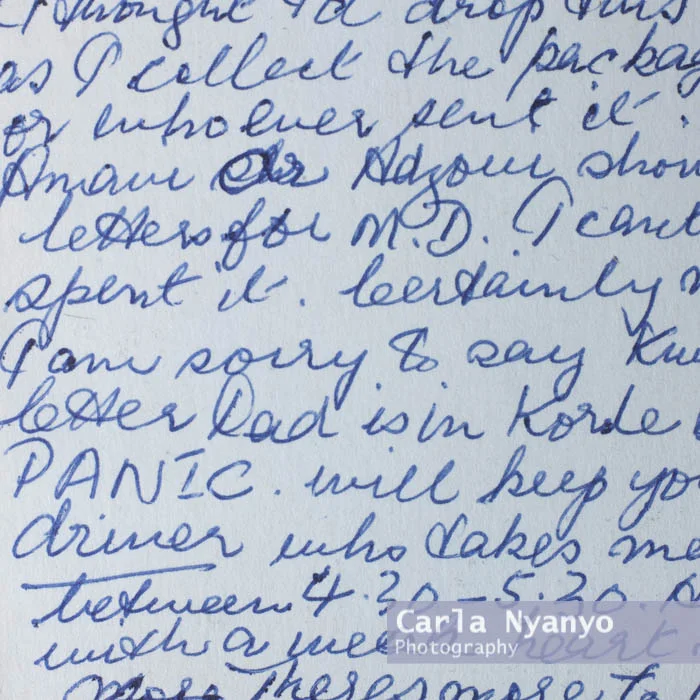 I thought I'd drop this
as I collect the packag
or whoever sent it.
Amavi or Adzovi show
letters for M.D. I can
spent it. Certainly
I am sorry to say Kw
letter Dad is in Korle
PANIC. will keep yo
driver who takes me
between 4.30 - 5.30.
with a heart
more There's more to
Carla Nyanyo
Photography